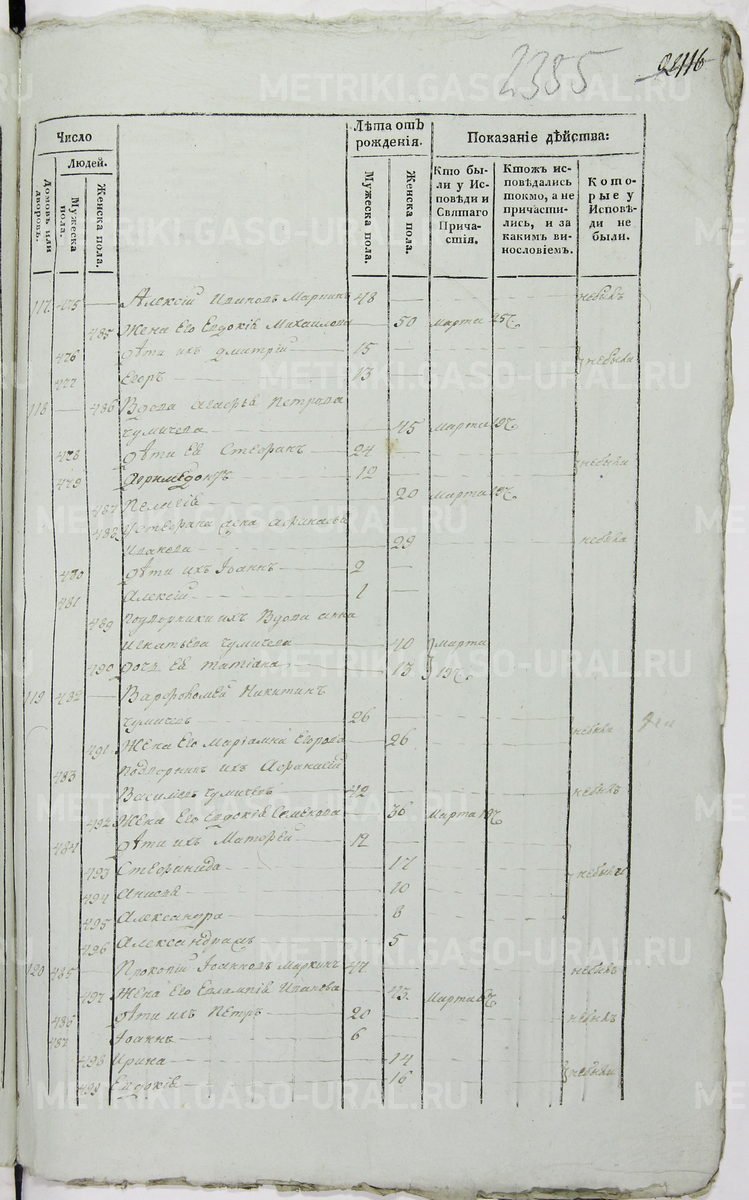 2385
Число
Лѣта отъ рожденія.
Показаніе дѣйства:
Людей.
Домовъ или дворовъ.
Мужеска пола.
Женска пола.
Мужеска пола.
Женска пола.
Кто были у Исповѣди и Святаго Причастія.
Ктожъ исповѣдались токмо, а не причастились, и за какимъ винословіемъ.
Которые у Исповѣди не были.
117 475 Алексій Ивановъ Маркинъ 48 небылъ
485 Жена Его Евдокія Михайлова 50 Марта
476 Дѣти ихъ Дмитрій 15 небыли
477 Егоръ 13
118 486 Вдова Агафья Петрова
Чумичева 45 Марта
478 Дѣти Ея Стефанъ 24 небыли
479 12
487 Пелагія 20 Марта
488 Стефана жена
Иванова 29 небыла
480 Дѣти ихъ Іоаннъ 2
481 Алексій 1
489 Подворники ихъ Вдова Анна
Игнатьева Чумичева 40 Марта
490 Дочь Ея Татіана 13
119 482 Варфоломей Никитинъ
Чумичевъ 26
491 Жена Его Маріамна Егорова 26
483 Подворникъ ихъ Афанасій
Васильевъ Чумичевъ 42 небылъ
492 Жена Его Евдокія 36 Марта
484 Дѣти ихъ 12
493 Стефанида 17 небыли
494 Анисія 10
495 Александра 8
496 5
120 485 Прокопій Іоанновъ Маркинъ 47 небылъ
497 Жена Его Евлампія Иванова 43 Марта
486 Дѣти ихъ Петръ 20 небылъ
487 Іоаннъ 6
498 Ирина 14
499 Евдокія 16 небыли
METRIKI.GASO-URAL.RU